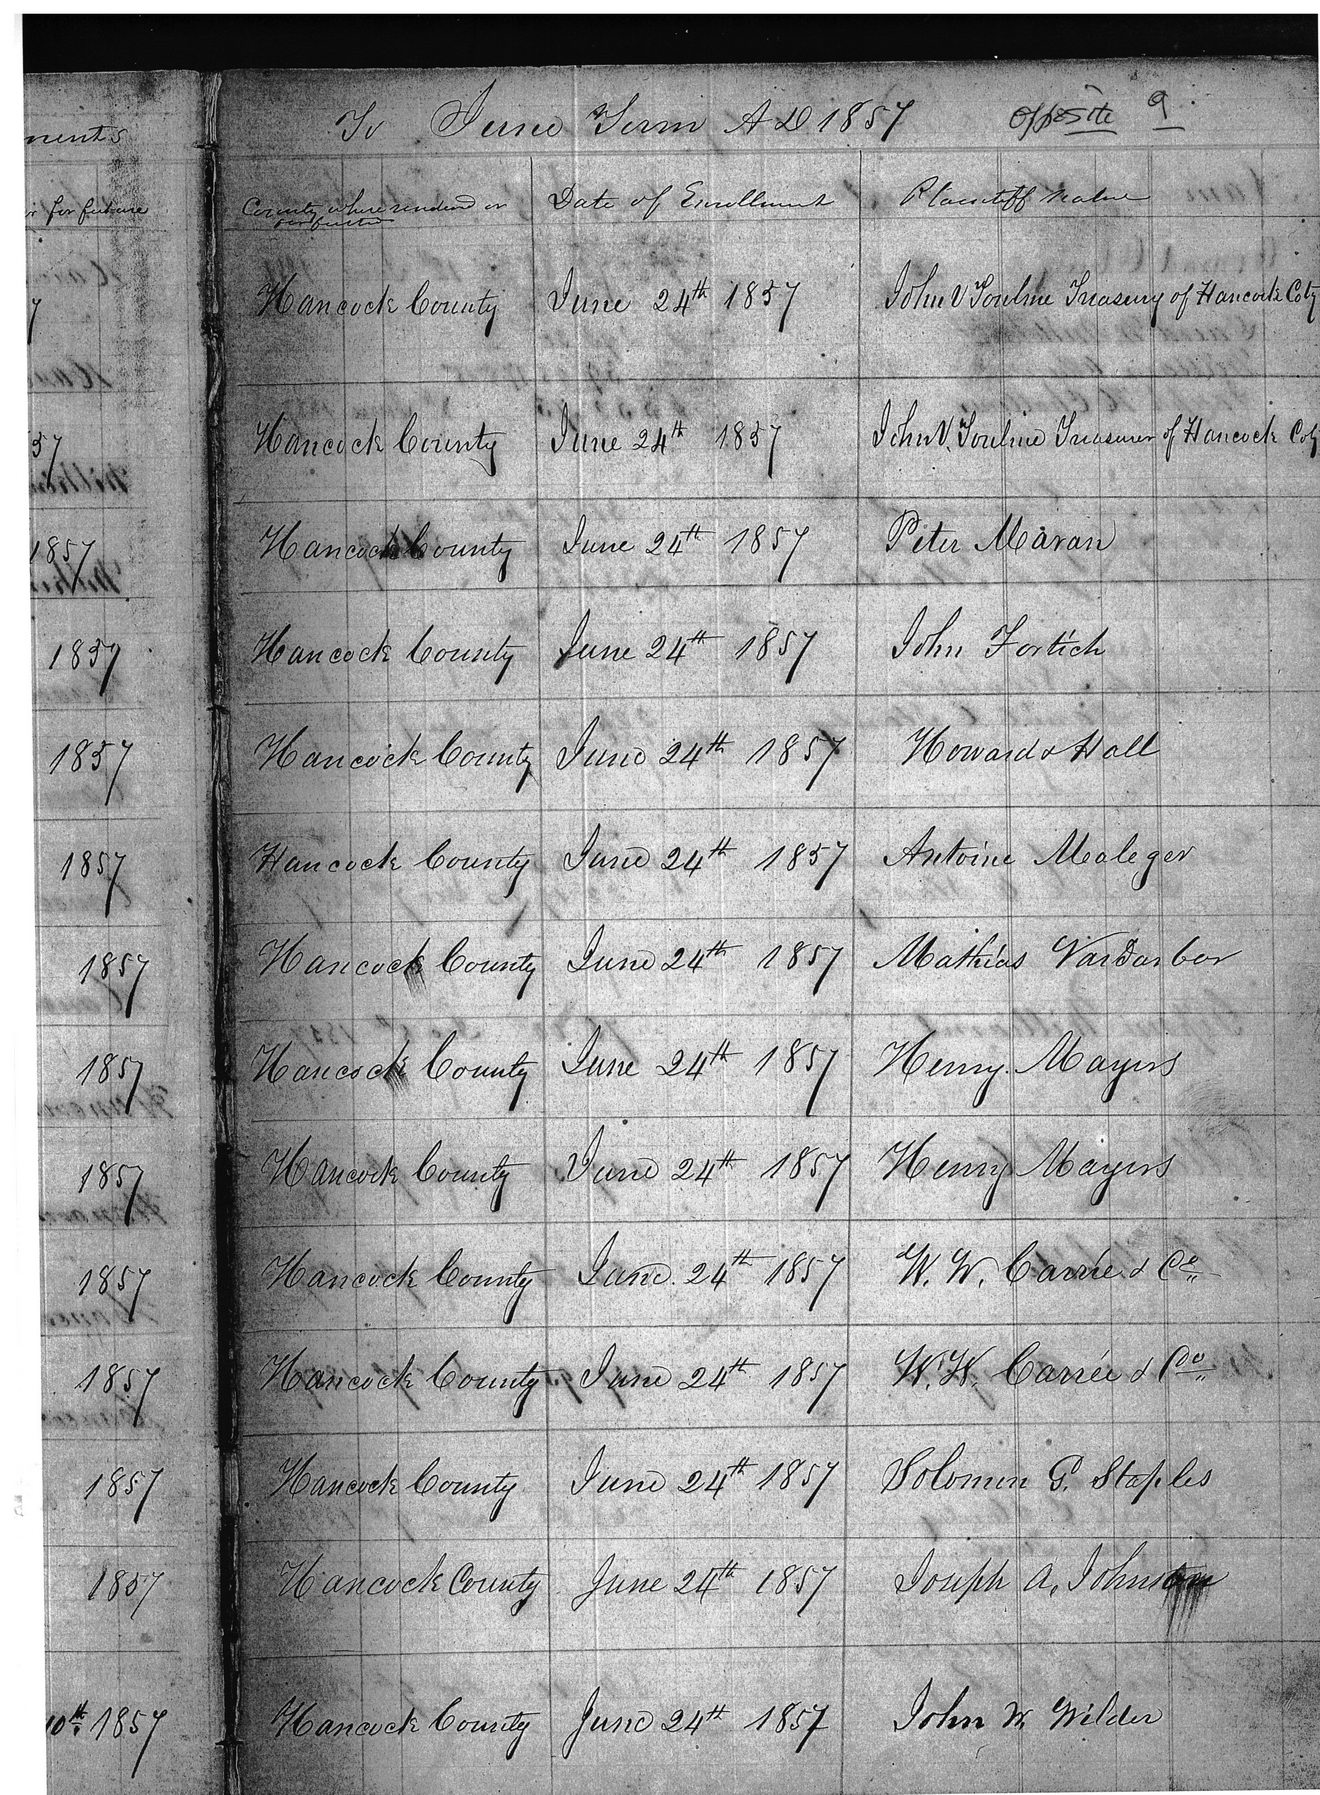 To June Term A D 1857 opposite 9
ments
for future
County where rendered or Date of Enrollment Plaintiff name
Hancock County June 24th 1857 John V Toulme Treasury of Hancock Coty
7
Hancock County June 24th 1857 John V. Toulme Treasurer of Hancock Coty
57
1857 Hancock County June 24th 1857 Peter Maran
1857 Hancock County June 24th 1857 John Fortich
1857 Hancock County June 24th 1857 Howard & Hall
1857 Hancock County June 24th 1857 Antoine Maleger
1857 Hancock County June 24th 1857 Mathias VarDarber
1857 Hancock County June 24th 1857 Henry Mayers
1857 Hancock County June 24th 1857 Henry Mayers
1857 Hancock County June 24th 1857 W. W. Carrée & Co
1857 Hancock County June 24th 1857 W. W. Carrée & Co
1857 Hancock County June 24th 1857 Solomon G. Staples
1857 Hancock County June 24th 1857 Joseph A, Johnston
10th 1857 Hancock County June 24th 1857 John W Wilder